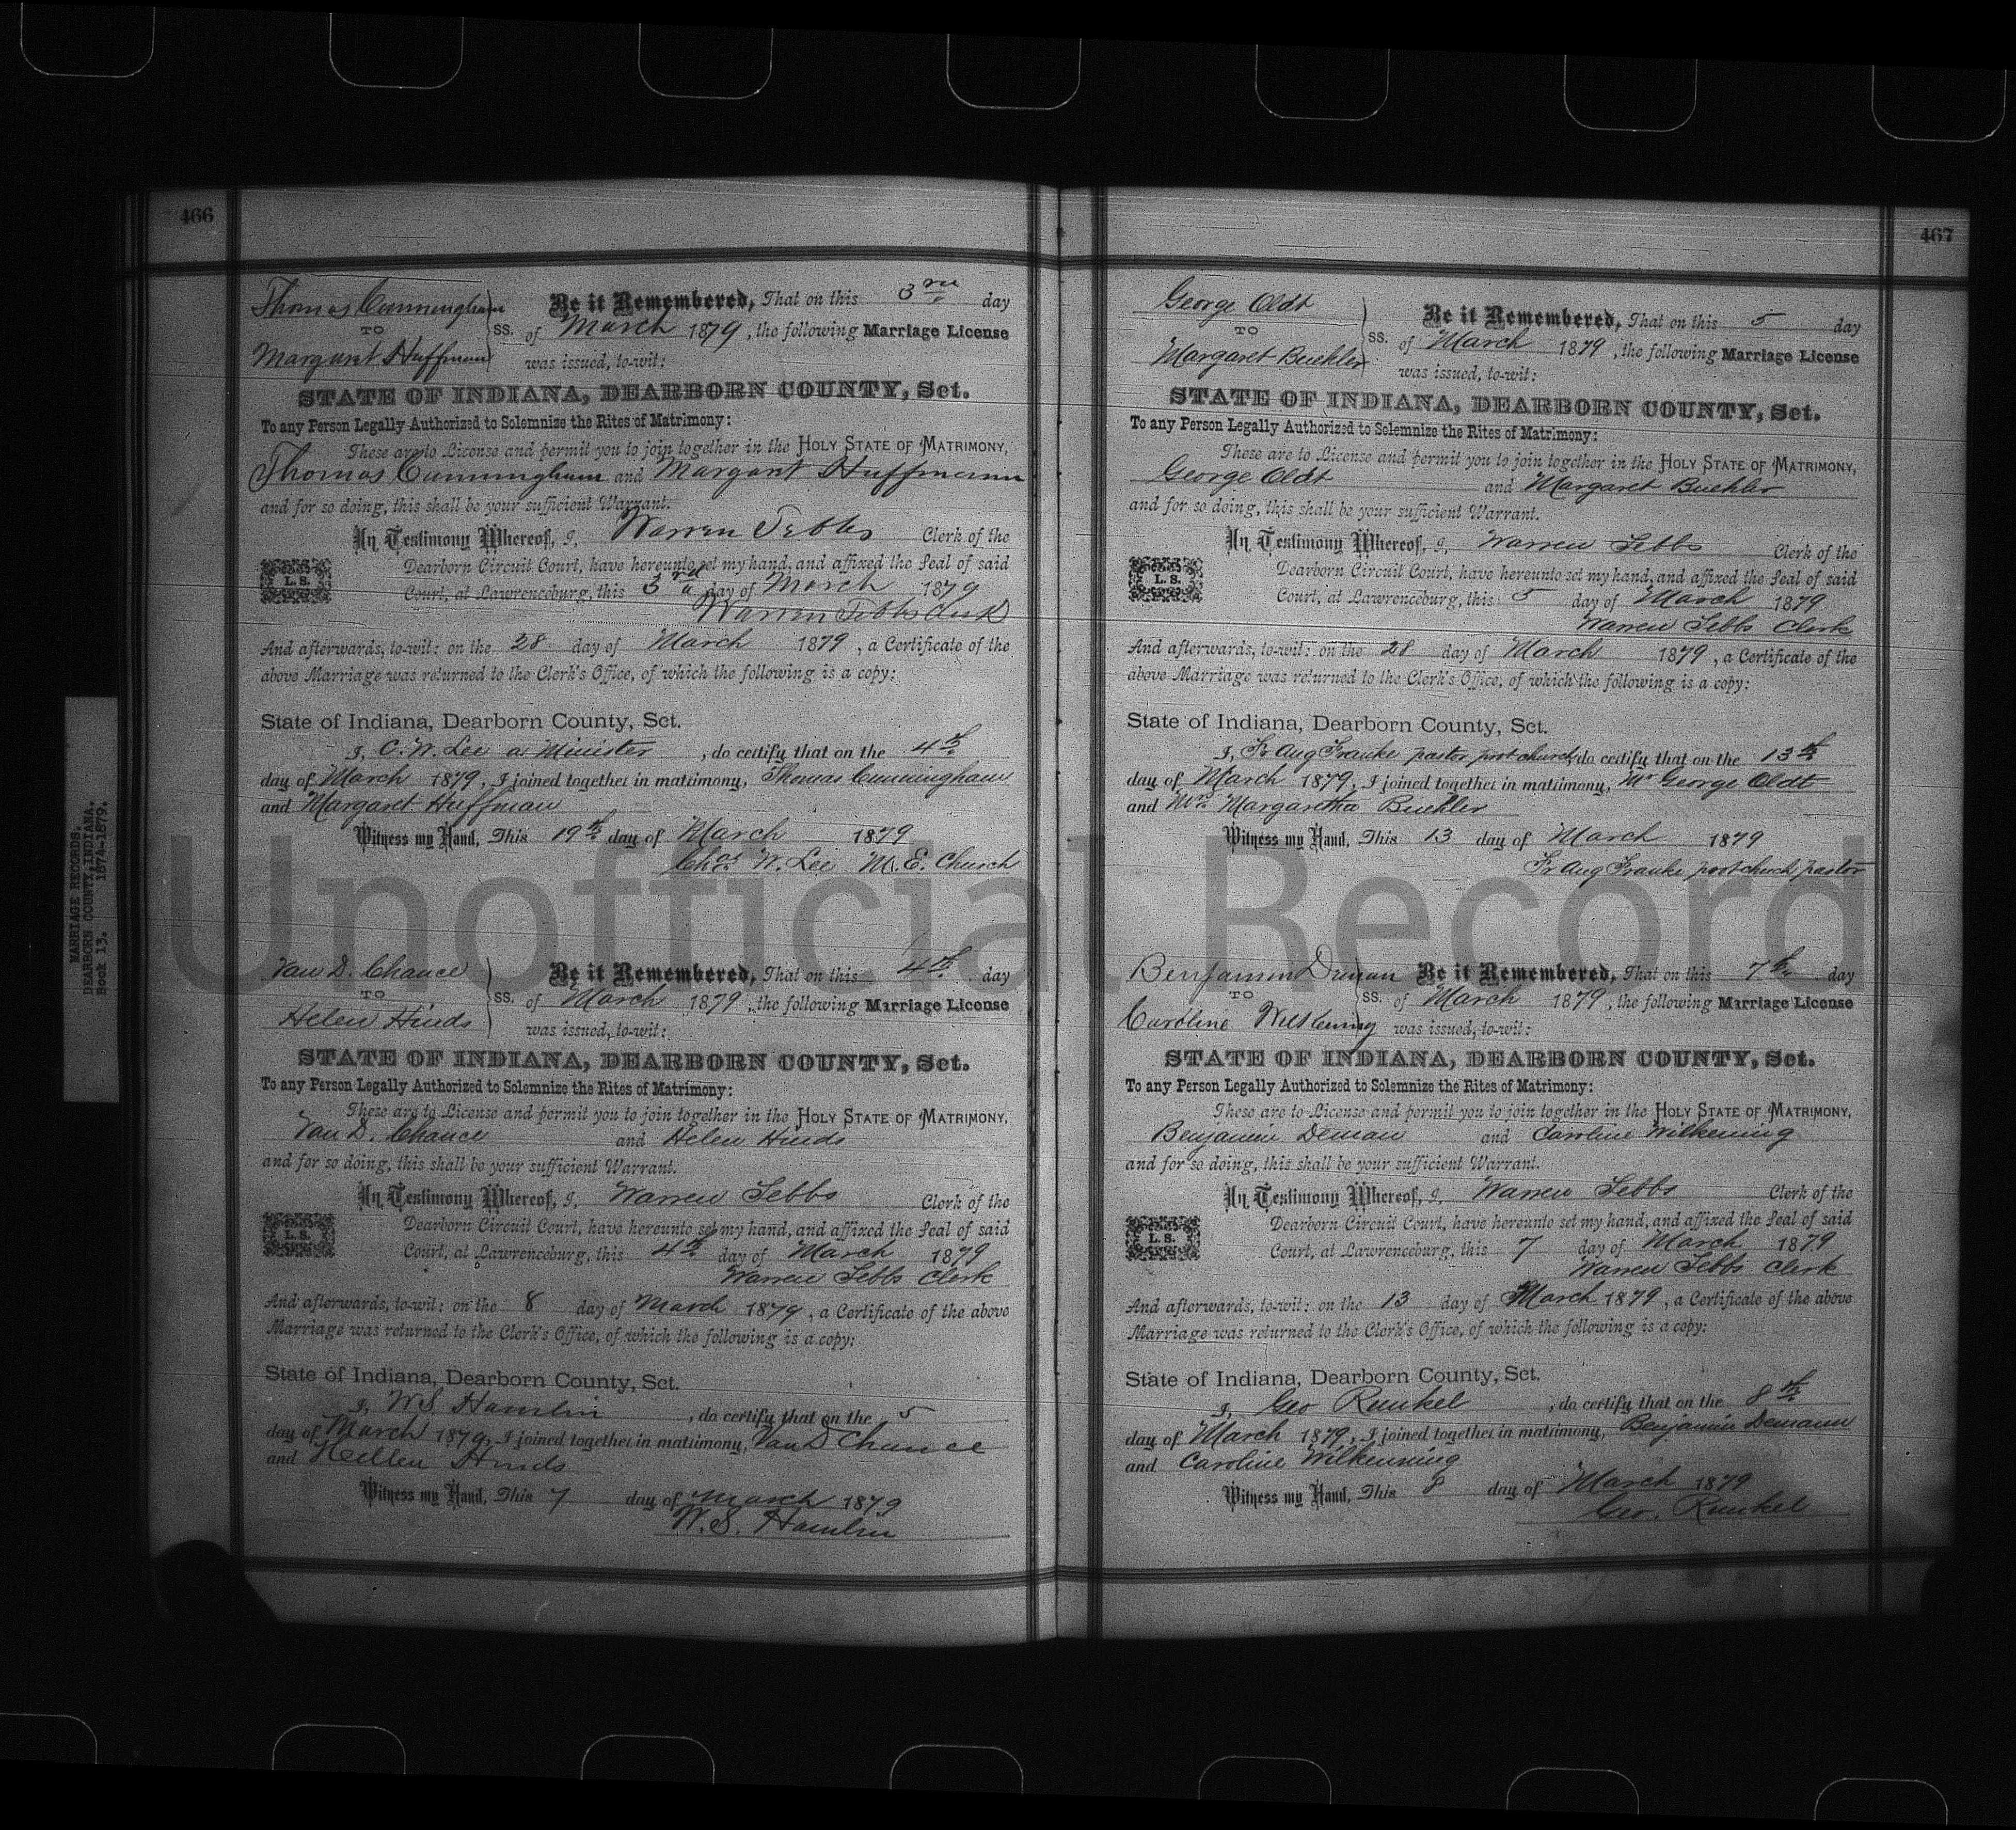 466
Thomas Cunningham
TO
Margaret Huffman
SS.
Be it Remembered, That on this 3rd day
of March 1879, the following Marriage License
was issued, to-wit:
STATE OF INDIANA, DEARBORN COUNTY, Sct.
To any Person Legally Authorized to Solemnize the Rites of Matrimony:
These are to License and permit you to join together in the HOLY STATE OF MATRIMONY,
Thomas Cunningham and Margaret Huffmann
and for so doing, this shall be your sufficient Warrant.
In Testimony Whereof, I, Warren Tebbs Clerk of the
Dearborn Circuit Court, have hereunto set my hand, and affixed the Seal of said
L. S.
Court, at Lawrenceburg, this 3rd day of March 1879
Warren Tebbs Clerk
And afterwards, to-wit: on the 28 day of March 1879, a Certificate of the
above Marriage was returned to the Clerk's Office, of which the following is a copy:
State of Indiana, Dearborn County, Sct.
I, C. W. Lee a Minister, do certify that on the 4th
day of March 1879, I joined together in matrimony, Thomas Cunningham
and Margaret Huffman
Witness my Hand, This 19th day of March 1879
Chas W. Lee M. E. Church
Van D. Chance
TO
Helen Hinds
SS.
Be it Remembered, That on this 4th day
of March 1879, the following Marriage License
was issued, to-wit:
STATE OF INDIANA, DEARBORN COUNTY, Sct.
To any Person Legally Authorized to Solemnize the Rites of Matrimony:
These are to License and permit you to join together in the HOLY STATE OF MATRIMONY,
Van D. Chance and Helen Hinds
and for so doing, this shall be your sufficient Warrant.
In Testimony Whereof, I, Warren Tebbs Clerk of the
Dearborn Circuit Court, have hereunto set my hand, and affixed the Seal of said
L. S.
Court, at Lawrenceburg, this 4th day of March 1879
Warren Tebbs Clerk
And afterwards, to-wit: on the 8 day of March 1879, a Certificate of the above
Marriage was returned to the Clerk's Office, of which the following is a copy:
State of Indiana, Dearborn County, Sct.
I, W. S. Hamlin, do certify that on the 5
day of March 1879, I joined together in matrimony, Van D Chance
and Hellen Hinds
Witness my Hand, This 7 day of March 1879
W. S. Hamlin
467
George Oldt
TO
Margaret Buehler
SS.
Be it Remembered, That on this 5 day
of March 1879, the following Marriage License
was issued, to-wit:
STATE OF INDIANA, DEARBORN COUNTY, Sct.
To any Person Legally Authorized to Solemnize the Rites of Matrimony:
These are to License and permit you to join together in the HOLY STATE OF MATRIMONY,
George Oldt and Margaret Buehler
and for so doing, this shall be your sufficient Warrant.
In Testimony Whereof, I, Warren Tebbs Clerk of the
Dearborn Circuit Court, have hereunto set my hand, and affixed the Seal of said
L. S.
Court, at Lawrenceburg, this 5 day of March 1879
Warren Tebbs Clerk
And afterwards, to-wit: on the 28 day of March 1879, a Certificate of the
above Marriage was returned to the Clerk's Office, of which the following is a copy:
State of Indiana, Dearborn County, Sct.
I, Fr Aug Franke pastor church, do certify that on the 13th
day of March 1879, I joined together in matrimony, Mr George Oldt
and Margaretha Buehler
Witness my Hand, This 13 day of March 1879
Fr Aug Franke church pastor
Benjamin Deman
TO
Caroline Wilkening
SS.
Be it Remembered, That on this 7th day
of March 1879, the following Marriage License
was issued, to-wit:
STATE OF INDIANA, DEARBORN COUNTY, Sct.
To any Person Legally Authorized to Solemnize the Rites of Matrimony:
These are to License and permit you to join together in the HOLY STATE OF MATRIMONY,
Benjamin Deman and Caroline Wilkening
and for so doing, this shall be your sufficient Warrant.
In Testimony Whereof, I, Warren Tebbs Clerk of the
Dearborn Circuit Court, have hereunto set my hand, and affixed the Seal of said
L. S.
Court, at Lawrenceburg, this 7 day of March 1879
Warren Tebbs Clerk
And afterwards, to-wit: on the 13 day of March 1879, a Certificate of the above
Marriage was returned to the Clerk's Office, of which the following is a copy:
State of Indiana, Dearborn County, Sct.
I, Geo Runkel, do certify that on the 8th
day of March 1879, I joined together in matrimony, Benjamin Demann
and Caroline Wilkenning
Witness my Hand, This 8 day of March 1879
Geo. Runkel
MARRIAGE RECORDS.
DEARBORN COUNTY, INDIANA.
Book 13. 1874-1879.
Unofficial Record